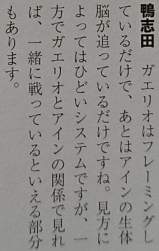 鴨志田　ガエリオはフレーミングし
ているだけで、あとはアインの生体
脳が追っているだけですね。見方に
よってはひどいシステムですが、一
方でガエリオとアインの関係で見れ
ば、一緒に戦っているといえる部分
もあります。